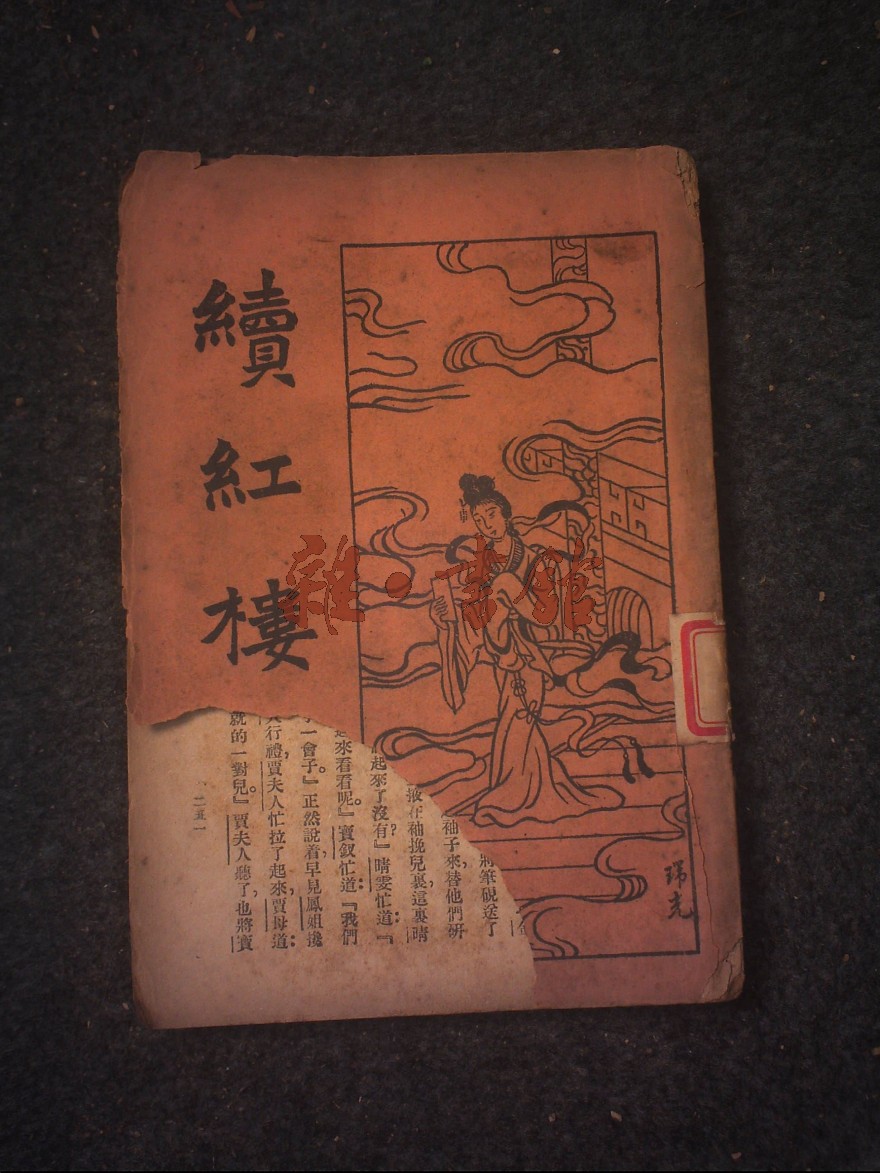 續紅樓
雜·書館
瑞光
將筆硯送了
袖子來替他們硏
掖在袖挽兒裏，這裏晴
起來了沒有？』晴雯忙道：『
來看看呢。』寶釵忙道：『我們
一會子。』正然說着，早見鳳姐攙
行禮，賈夫人忙拉了起來，賈母道：
就的一對兒。』賈夫人聽了，也將寶
二五一